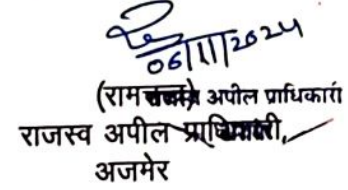 06/11/2024
(राम अपील प्राधिकारी
राजस्व अपील प्राधिकारी,
अजमेर